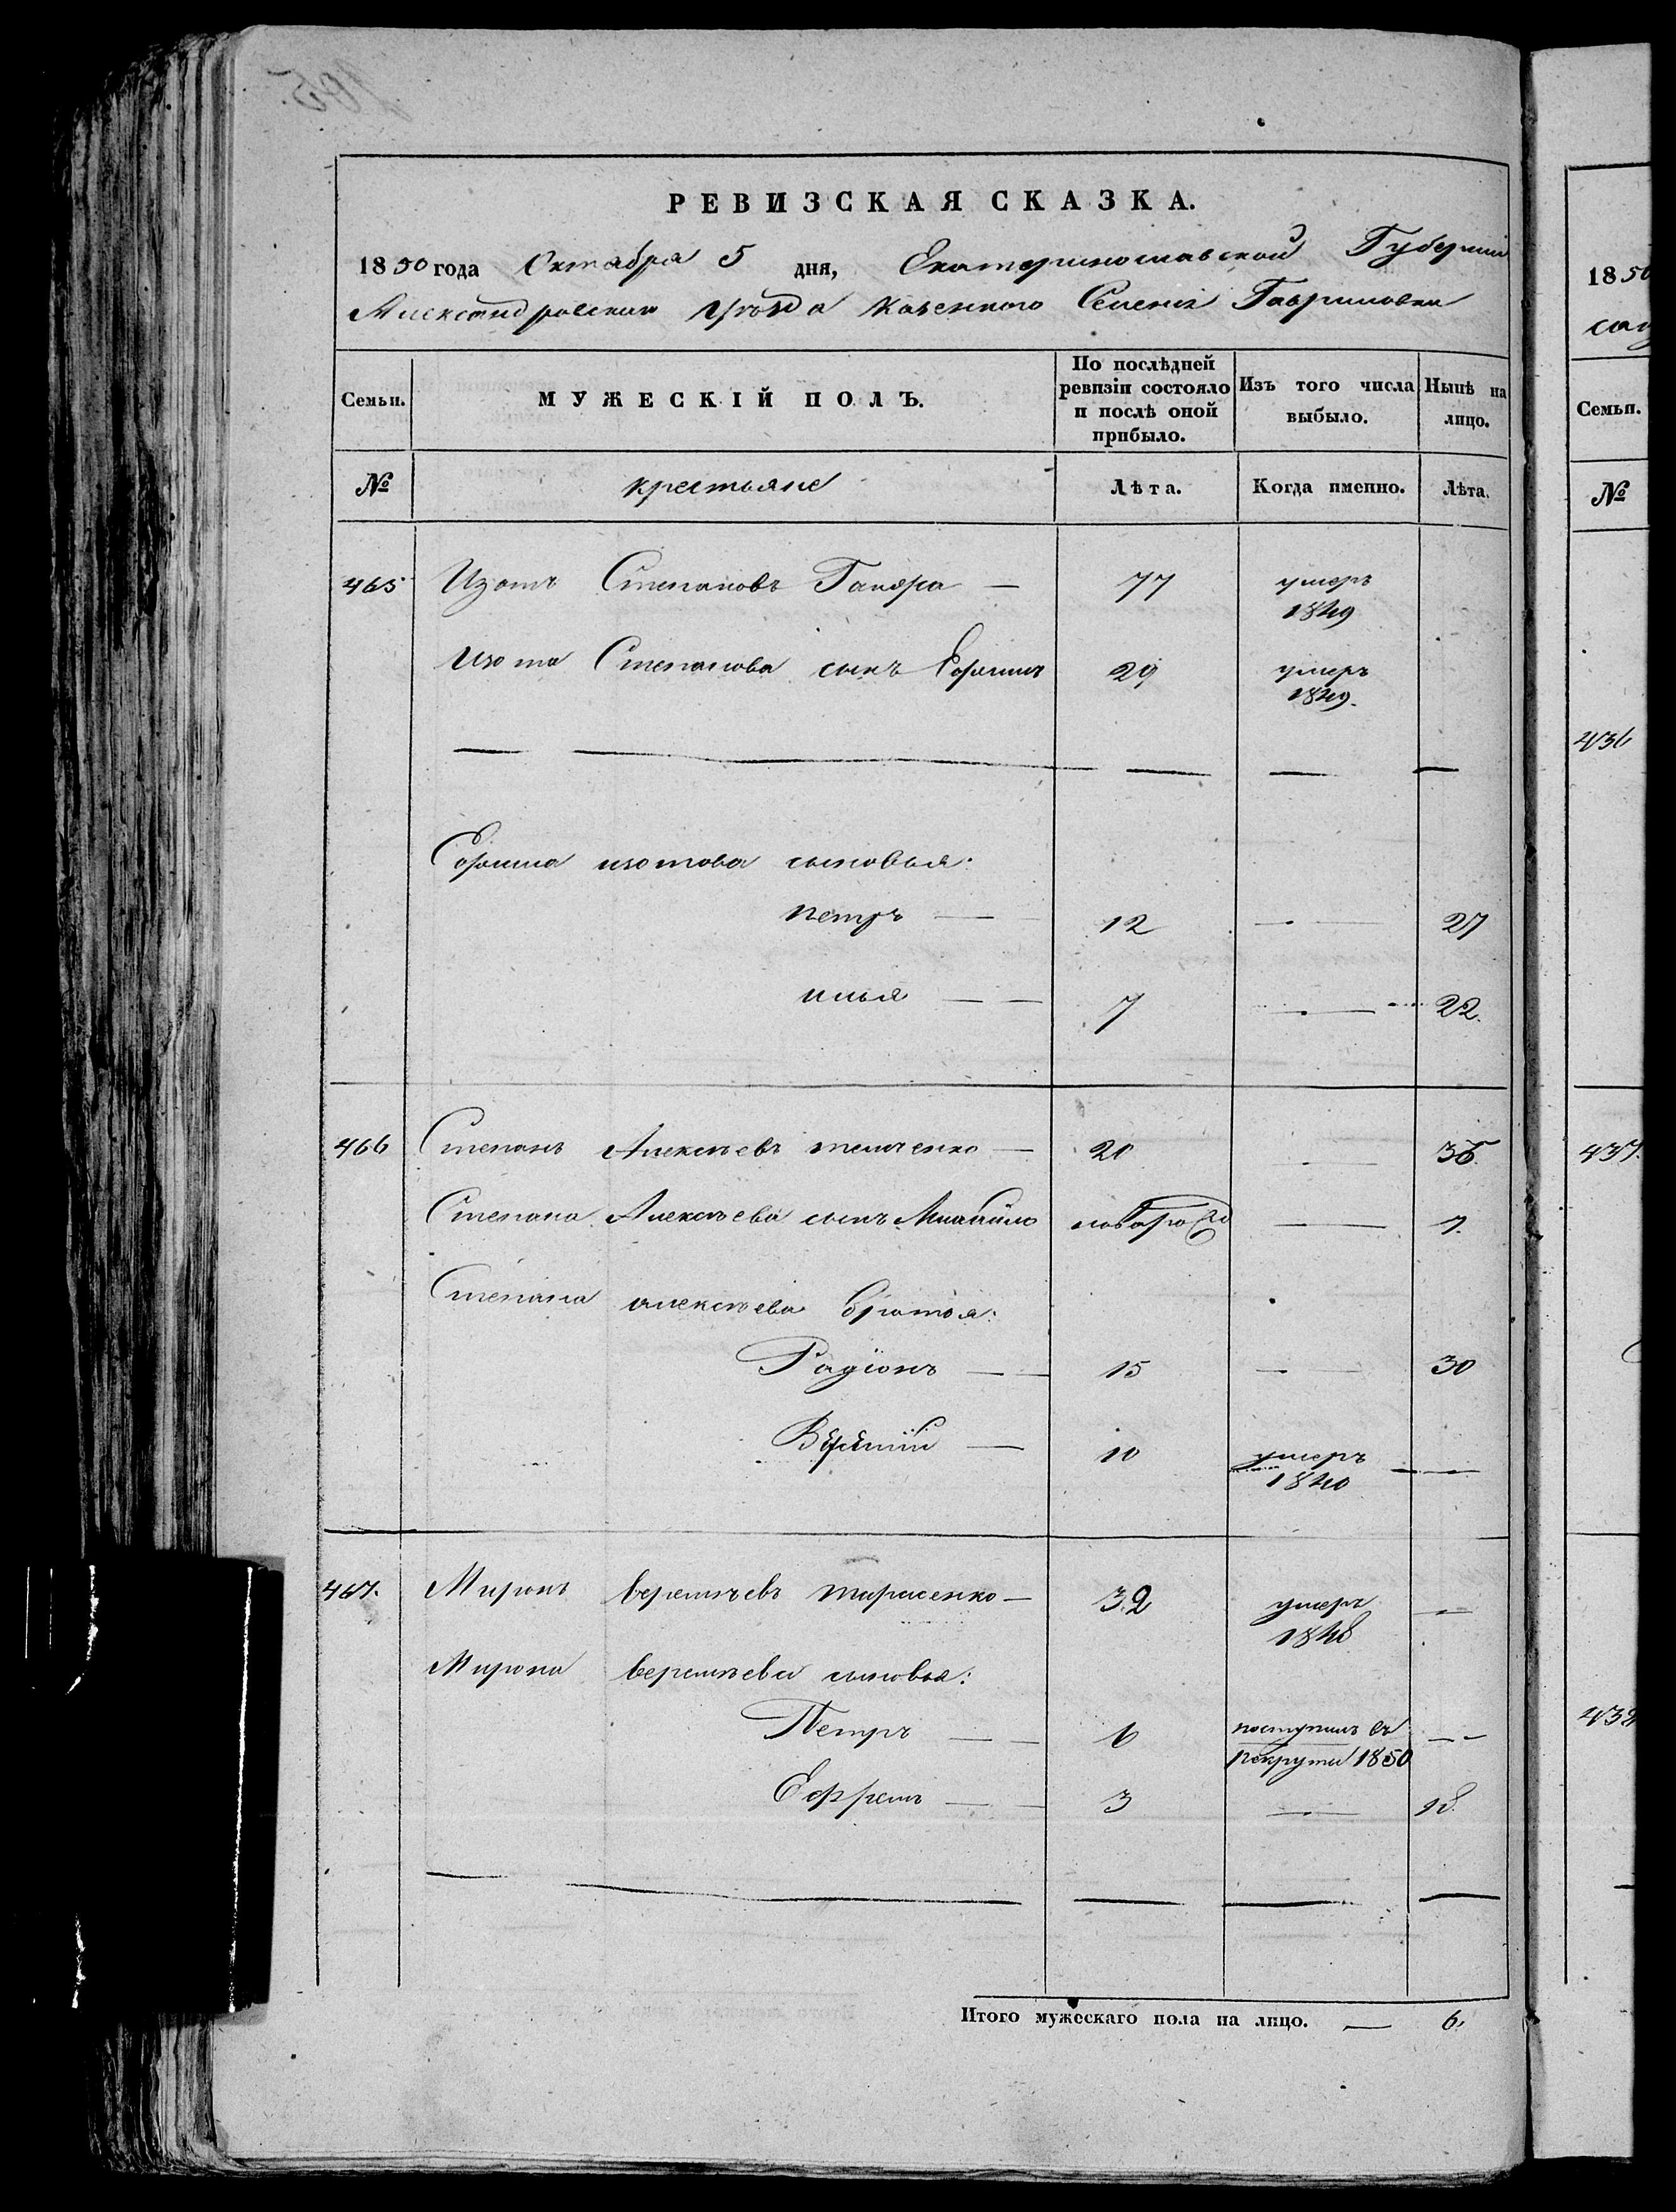 РЕВИЗСКАЯ СКАЗКА.
1850 года Октабря 5 дня, Екатеринославской Губернии
Александровскаго уѣзда Казенного Селенія Гавриловки
Семьи. МУЖЕСКІЙ ПОЛЪ. По послѣдней ревизіи состояло и послѣ оной прибыло. Изъ того числа выбыло. Нынѣ на лицо.
№ крестьяне Лѣта. Когда именно. Лѣта.
465 Изотъ Степановъ — 77 умеръ 1849
Изота Степанова сынъ 29 умеръ 1849.
изотова сыновья:
петръ — 12 — 27
илья — — 7 — 22.
466 Степанъ Алексѣевъ — 20 — 35.
Степана Алексѣева сынъ Михайло — 7.
Степана алексѣева братья:
Радіонъ — — 15 — 30
— 10 умеръ 1840 —
467. Миронъ веремѣевъ тарасенко — 32 умеръ 1848 —
Мирона веремѣева сыновья:
Петръ — — 6 поступилъ въ рекруты 1850 —
Ефремъ — — 3 — 18.
Итого мужескаго пола на лицо. — 6.
1850
Семьи.
№
436
437.